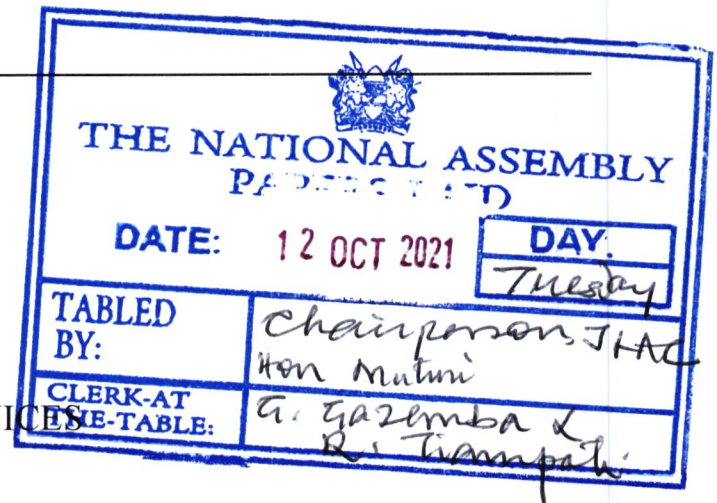 THE NATIONAL ASSEMBLY
PAPERS LAID
DATE: 12 OCT 2021
DAY:
Tuesday
TABLED BY:
Chairperson, JLAC
Hon Muturi
CLERK-AT THE-TABLE:
G. Gazemba &